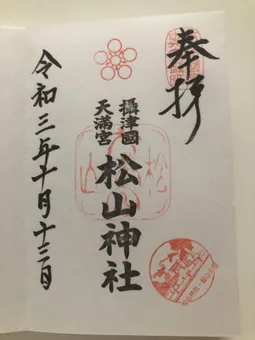 奉拝
攝津國
天満宮
松山神社
令和三年十月十三日